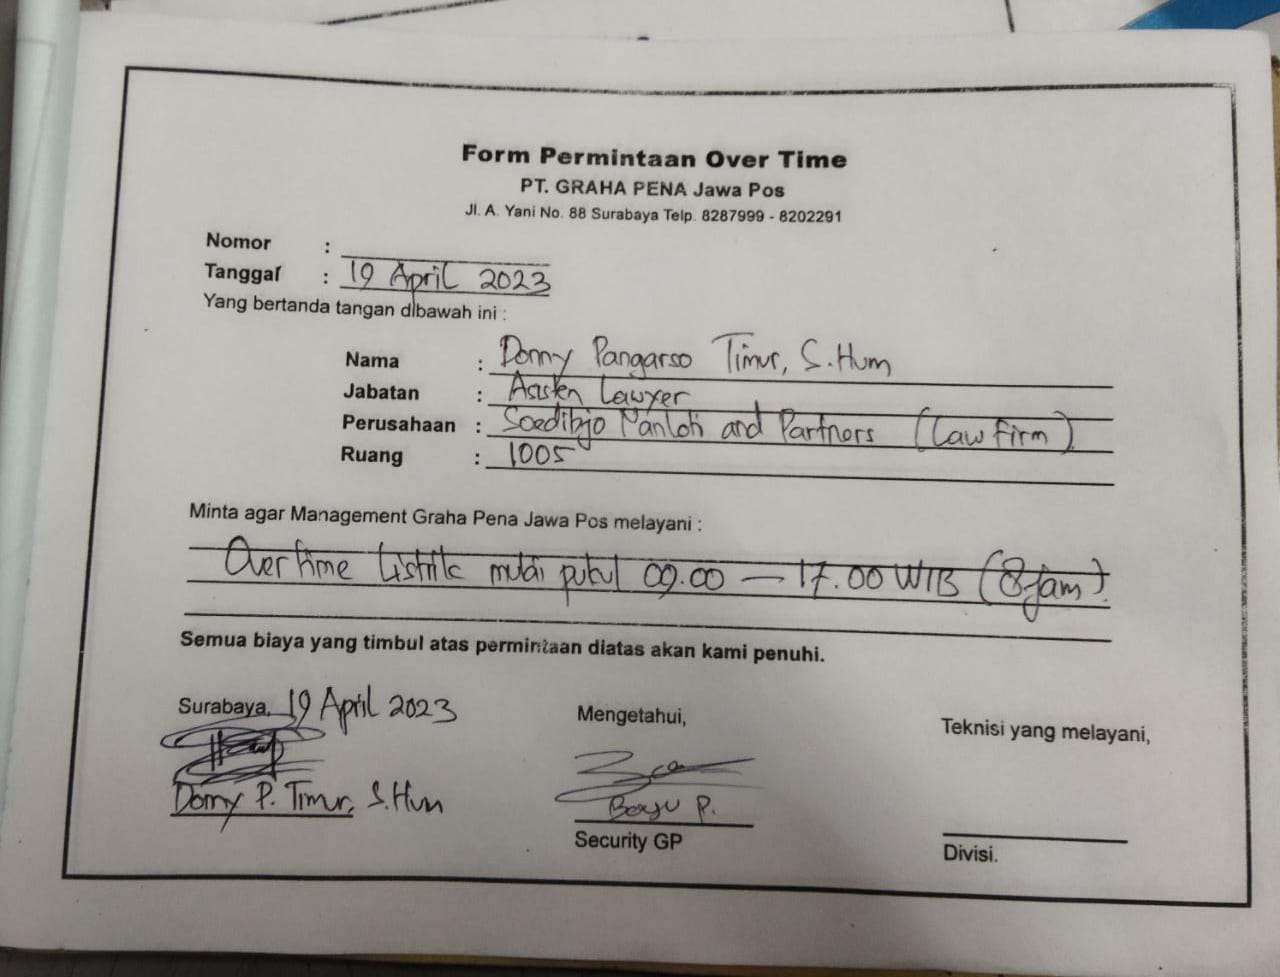 Form Permintaan Over Time
PT. GRAHA PENA Jawa Pos
Jl. A. Yani No. 88 Surabaya Telp. 8287999 - 8202291
Nomor :
Tanggal : 19 April 2023
Yang bertanda tangan dibawah ini :
Nama : Donny Pangarso Timur, S.Hum
Jabatan : Asisten Lawyer
Perusahaan : Soedibjo and Partners (Law firm)
Ruang : 1005
Minta agar Management Graha Pena Jawa Pos melayani :
Over time Listrik mulai pukul 09.00 — 17.00 WIB (8 jam).
Semua biaya yang timbul atas permintaan diatas akan kami penuhi.
Surabaya, 19 April 2023
Mengetahui,
Teknisi yang melayani,
Donny P. Timur, S.Hum
Bayu P.
Security GP
Divisi.